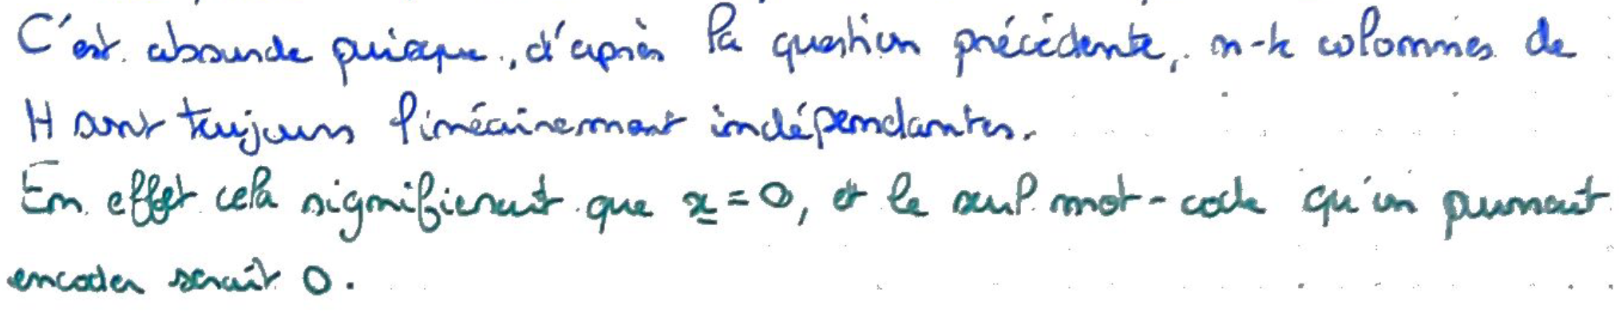 C'est absurde puisque, d'après la question précédente, n-k colonnes de
H sont toujours linéairement indépendantes.
En effet cela signifierait que x = 0, et le seul mot-code qu'on pourrait
encoder serait 0.